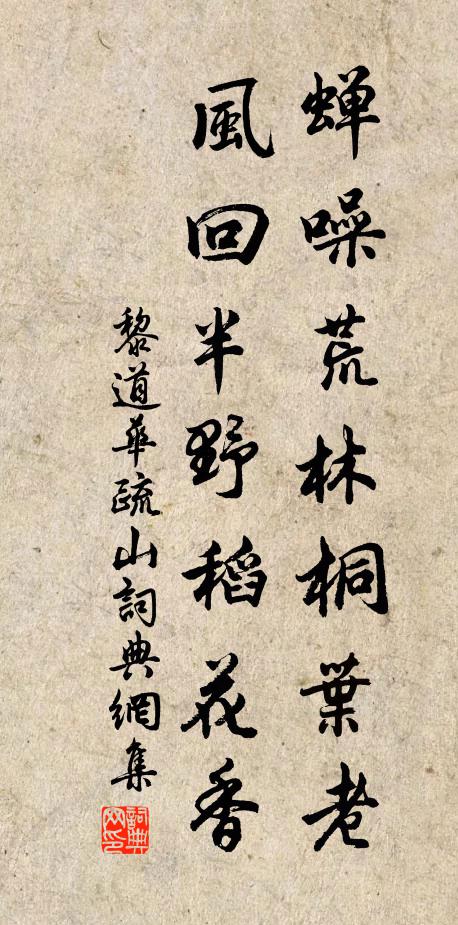 蝉噪荒林桐葉老
風回半野稻花香
黎道華疏山詞典網集
詞典网印